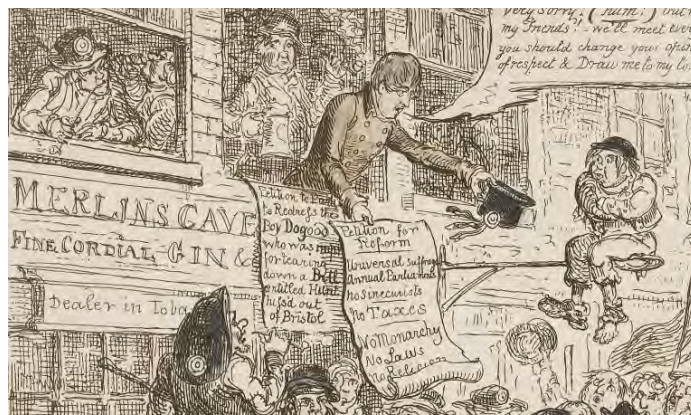 very sorry! (hum!) but
my Friends! - we'll meet
you should change your
of respect & Draw me to my
MERLINS CAVE
FINE CORDIAL GIN &
Dealer in Toba
Petition to
to Redress the
Boy Dogood
who was
for tearing
down a Bill
entitled Hunt
hiss'd out
of Bristol
Petition for
Reform
Universal suffrage
annual Parliaments
no sinecurists
No Taxes
No Monarchy
No Laws
No Religion